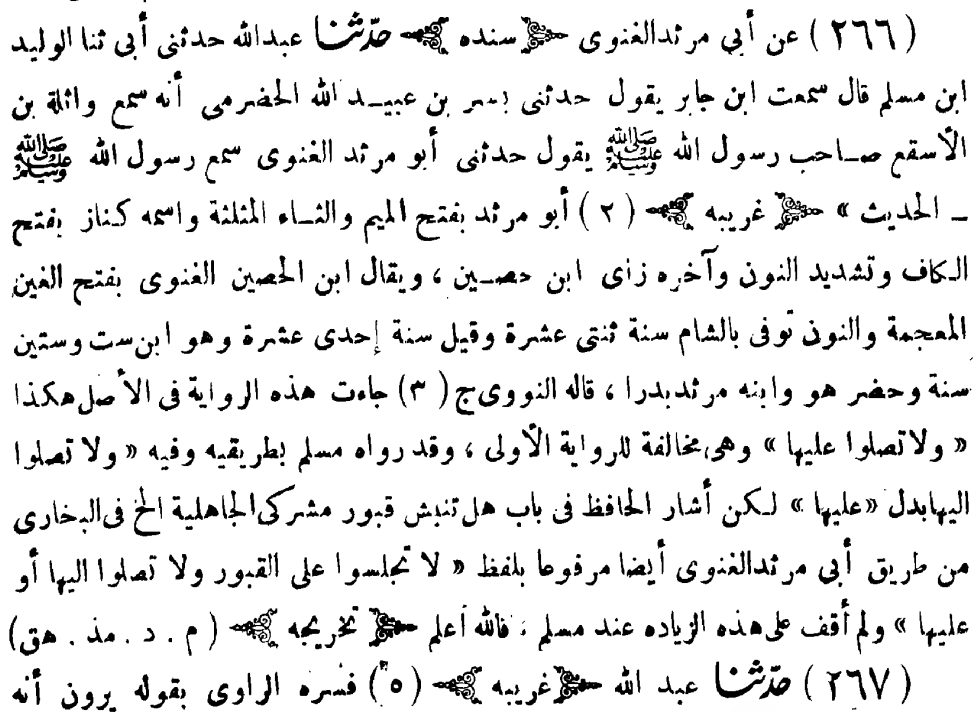 (٢٦٦) عن أبي مرثد الغنوى ﴿سنده﴾ حدّثنا عبدالله حدثنى أبى ثنا الوليد
ابن مسلم قال سمعت ابن جابر يقول حدثنى بسر بن عبيـد الله الحضرمى أنه سمع واثلة بن
الأسقع صـاحب رسول الله ﷺ يقول حدثنى أبو مرثد الغنوى سمع رسول الله ﷺ
ـ الحديث » ﴿غريبه﴾ (٢) أبو مرثد بفتح الميم والثـاء المثلثة واسمه كـناز بفتح
الـكاف وتشديد النون وآخره زاى ابن حصـين ، ويقال ابن الحصين الغنوى بفتح الغين
المعجمة والنون توفى بالشام سنة ثنتى عشرة وقيل سنة إحدى عشرة وهو ابن ست وستين
سنة وحضر هو وابنه مرثدبدرا ، قاله النووى ج (٣) جاءت هذه الرواية فى الأصل هكذا
« ولا تصلوا عليها » وهى مخالفة للرواية الأولى ، وقد رواه مسلم بطريقيه وفيه « ولا تصلوا
اليها بدل «عليها » لـكن أشار الحافظ فى باب هل تنبش قبور مشركى الجاهلية الخ فى البخارى
من طريق أبى مرثدالغنوى أيضا مرفوعا بلفظ « لا تجلسوا على القبور ولا تصلوا اليها أو
عليها » ولم أقف على هذه الزياده عند مسلم ، فالله أعلم ﴿تخريجه﴾ (م . د . مذ . هق)
(٢٦٧) حدّثنا عبد الله ﴿غريبه﴾ (٥) فسره الراوى بقوله يرون أنه